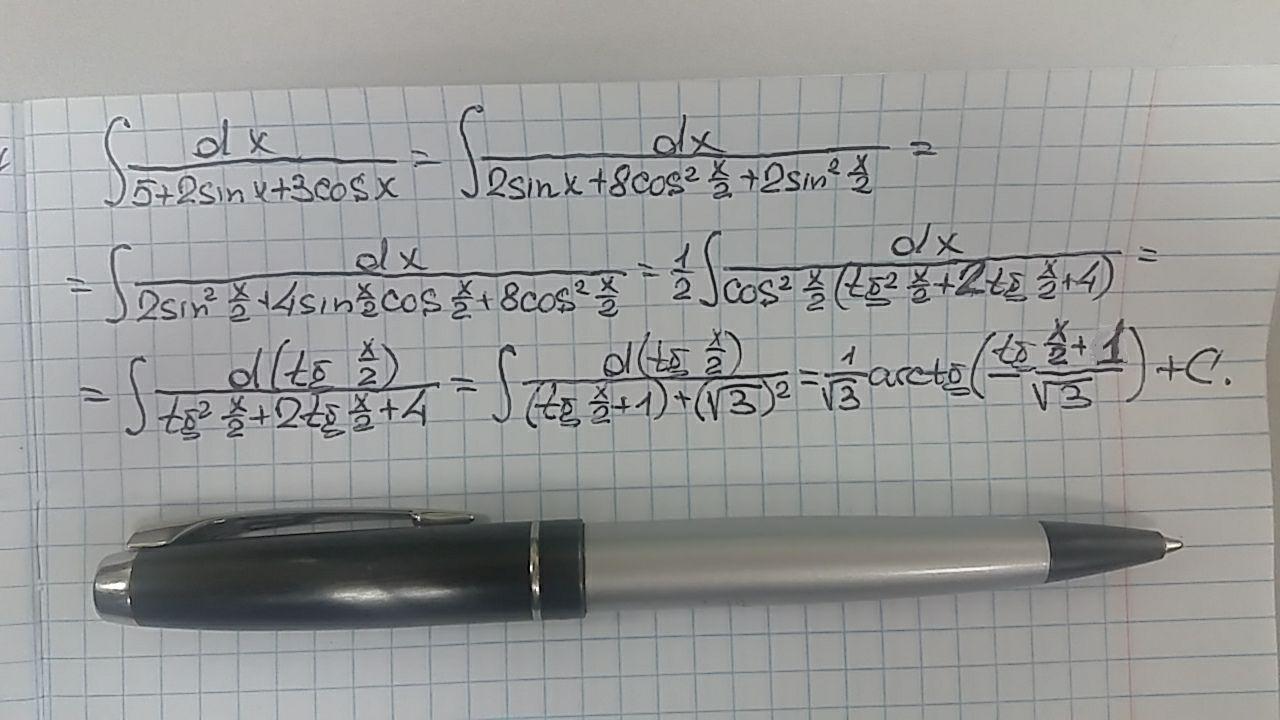 ∫ dx/(5+2sin x+3cos x) = ∫ dx/(2sin x+8cos² x/2 +2sin² x/2) =
= ∫ dx/(2sin² x/2 +4sin x/2 cos x/2 +8cos² x/2) = 1/2 ∫ dx/(cos² x/2 (tg² x/2 +2tg x/2 +4)) =
= ∫ d(tg x/2)/(tg² x/2 +2tg x/2 +4) = ∫ d(tg x/2)/((tg x/2 +1)+(√3)²) = 1/√3 arctg((tg x/2 + 1)/√3) +C.